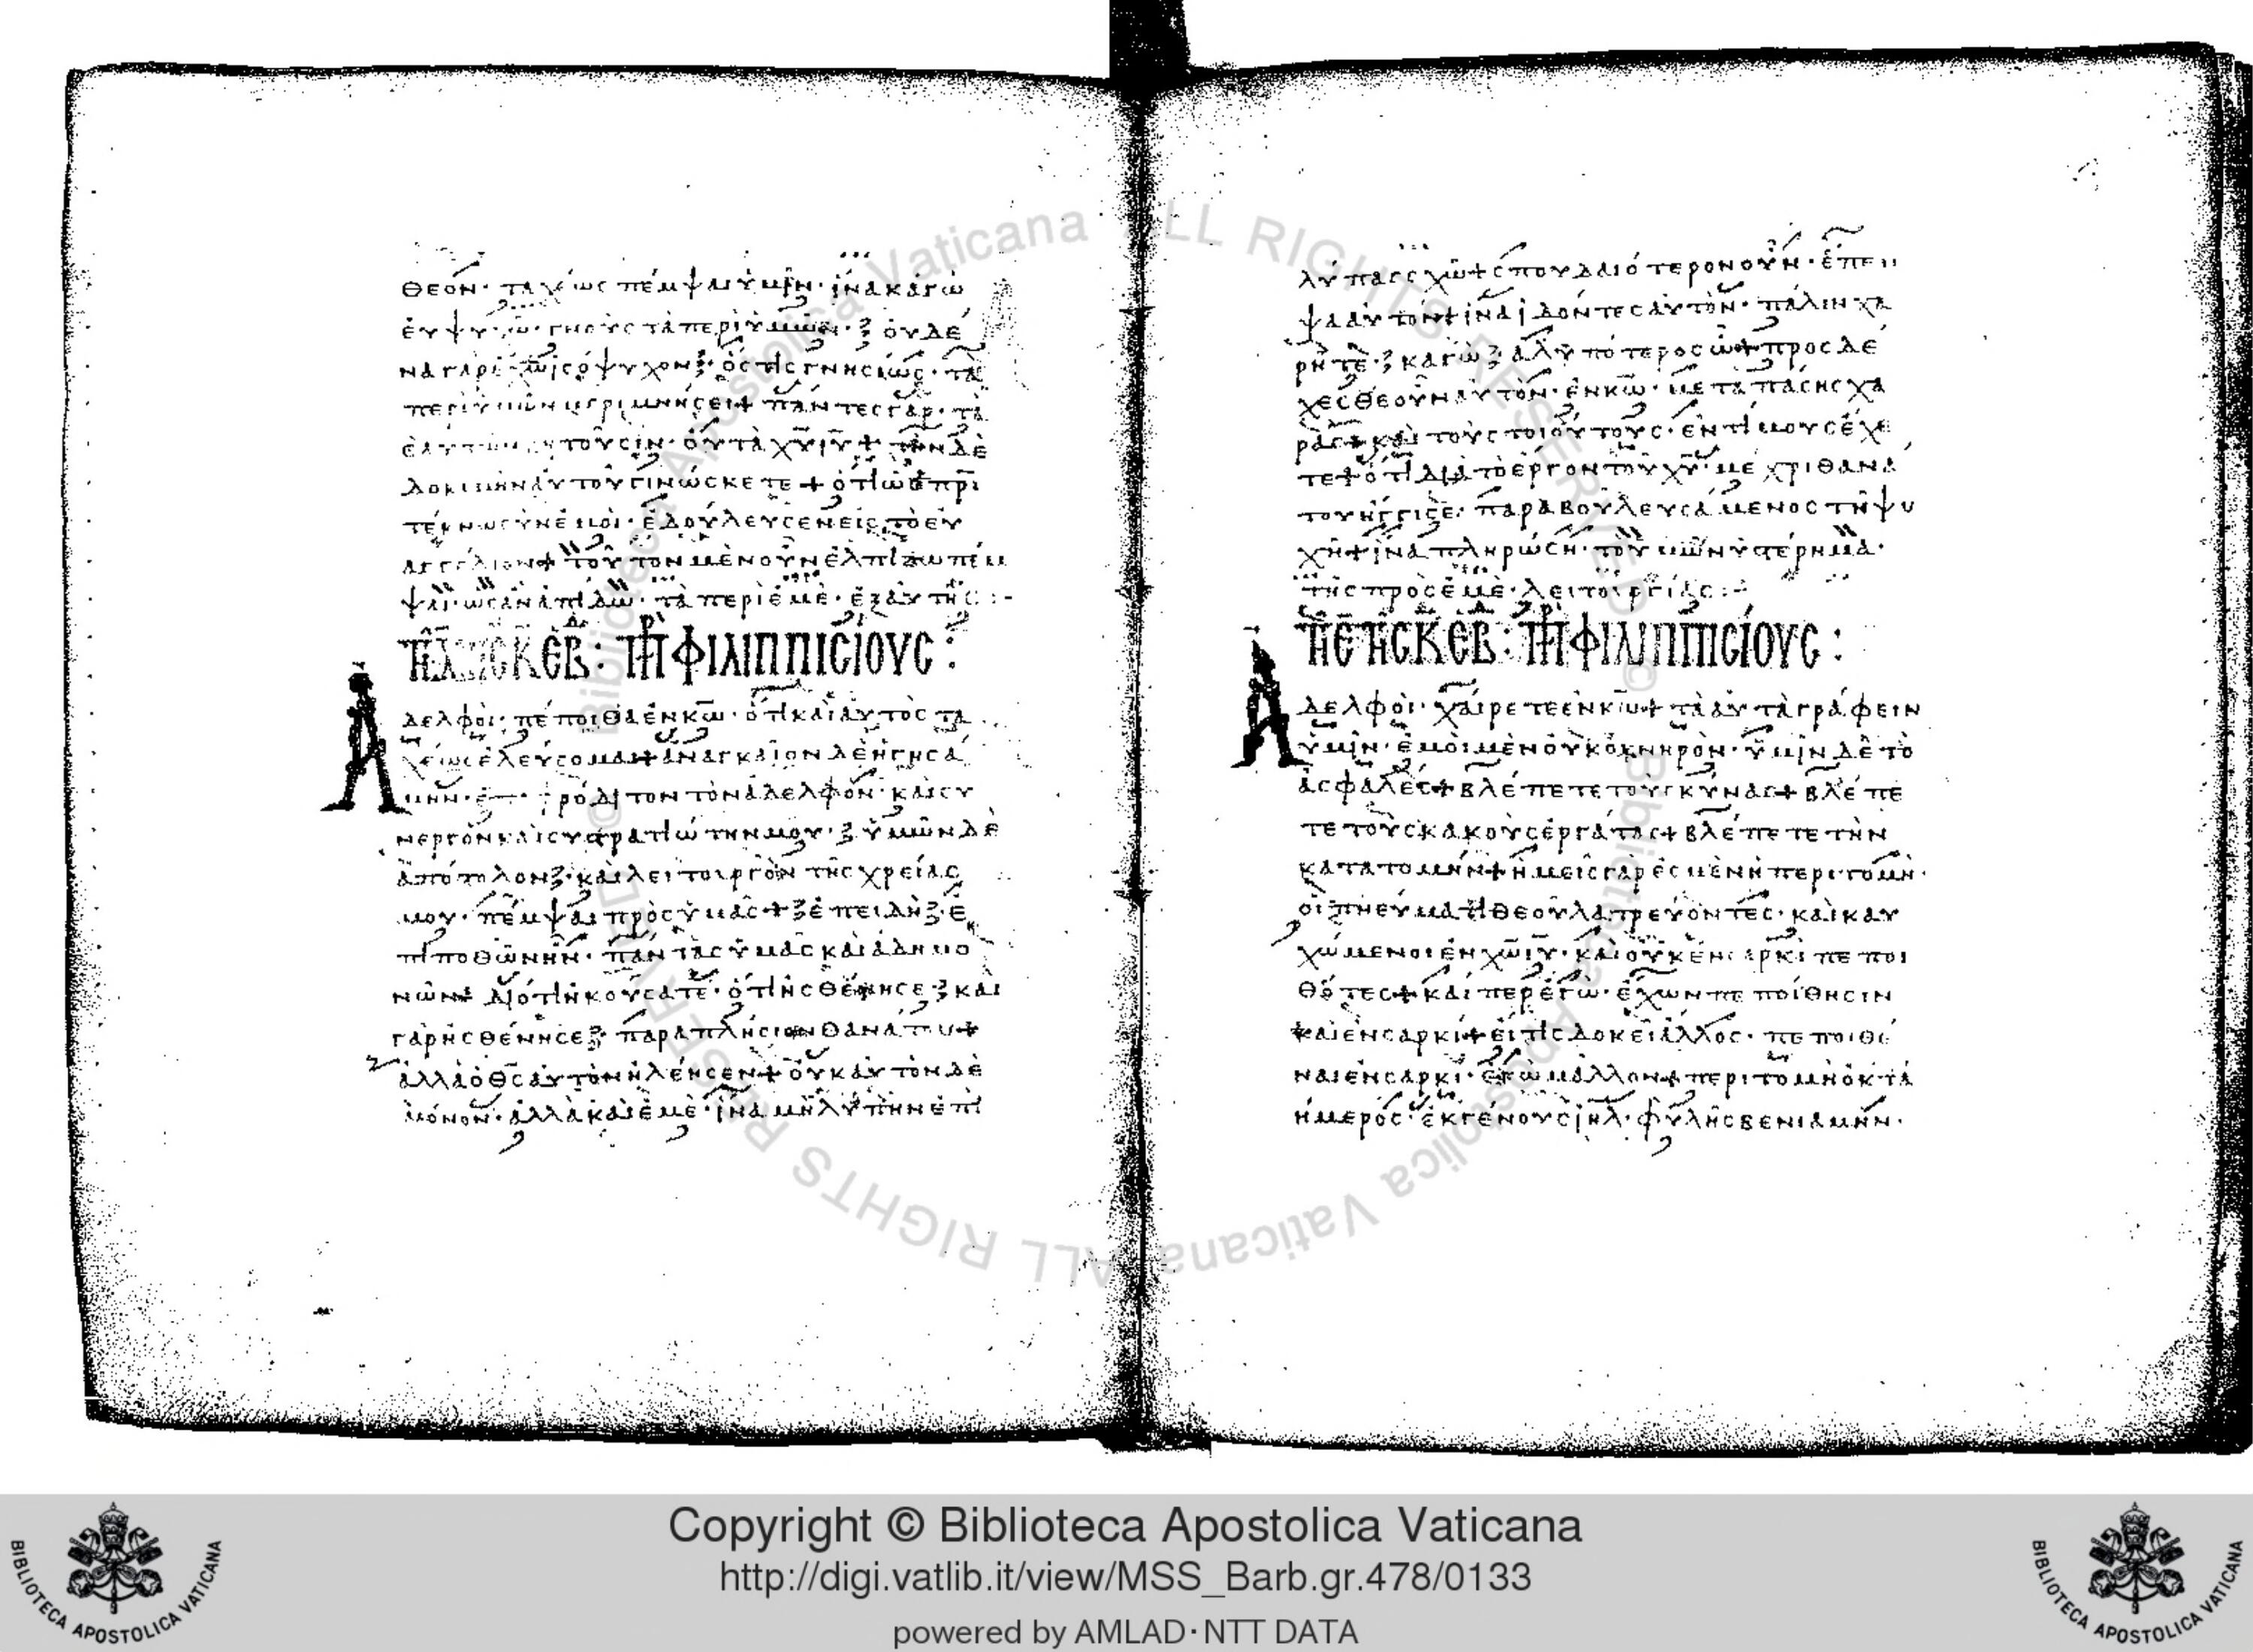 θεόν· ταχέως πέμψαι ὑμῖν· ἵνα κἀγὼ
εὐψυχῶ· γνοὺς τὰ περὶ ὑμῶν· ξ οὐδέ
να γὰρ ἰσόψυχον ξ· ὅστις γνησίως· τὰ
περὶ ὑμῶν μεριμνήσει + πάντες γὰρ· τὰ
ἑαυτῶν ζητοῦσιν· οὐ τὰ χ̅υ̅ ι̅υ̅ + τὴν δὲ
δοκιμὴν αὐτοῦ γινώσκετε + ὅτι ὡς π̅ρ̅ι
τέκνον σὺν ἐμοὶ· ἐδούλευσεν εἰς τὸ εὐ
αγγέλιον + τοῦτον μὲν οὖν ἐλπίζω πέμ
ψαι· ὡς ἂν ἀπίδω· τὰ περὶ ἐμὲ· ἐξαυτῆς :-
φιλιππισίους :
Ἀδελφοὶ· πέποιθα ἐν κ̅ω̅· ὅτι καὶ αὐτὸς τα
χέως ἐλεύσομαι + ἀναγκαῖον δὲ ἡγησά
μην· ἐπαφρόδιτον τὸν ἀδελφὸν· καὶ συ
νεργὸν καὶ συστρατιώτην μου· ξ ὑμῶν δὲ
ἀπόστολον ξ· καὶ λειτουργὸν τῆς χρείας
μου· πέμψαι πρὸς ὑμᾶς + ξ ἐπειδὴ ξ ἐ
πιποθῶν ἦν· πάντας ὑμᾶς καὶ ἀδημο
νῶν + διότι ἠκούσατε· ὅτι ἠσθένησε ξ καὶ
γὰρ ἠσθένησε ξ· παραπλήσιον θανάτου +
ἀλλὰ ὁ θ̅ς̅ αὐτὸν ἠλέησεν + οὐκ αὐτὸν δὲ
μόνον· ἀλλὰ καὶ ἐμὲ· ἵνα μὴ λύπην ἐπὶ
λύπας σχῶ + σπουδαιότερον οὖν· ἔπεμ
ψα αὐτὸν + ἵνα ἰδόντες αὐτὸν· πάλιν χα
ρῆτε· ξ κἀγὼ ξ ἀλυπότερος ὦ + προσδέ
χεσθε οὖν αὐτὸν· ἐν κ̅ω̅· μετὰ πάσης χα
ρᾶς + καὶ τοὺς τοιούτους· ἐντίμους ἔχε
τε + ὅτι διὰ τὸ ἔργον τοῦ χ̅υ̅· μέχρι θανά
του ἤγγισε· παραβουλευσάμενος τῇ ψυ
χῇ + ἵνα πληρώσῃ· τὸ ὑμῶν ὑστέρημα·
τῆς πρὸς ἐμὲ· λειτουργίας :-
φιλιππισίους :
Ἀδελφοὶ· χαίρετε ἐν κ̅ω̅ + τὰ αὐτὰ γράφειν
ὑμῖν· ἐμοὶ μὲν οὐκ ὀκνηρὸν· ὑμῖν δὲ τὸ
ἀσφαλές + βλέπετε τοὺς κύνας + βλέπε
τε τοὺς κακοὺς ἐργάτας + βλέπετε τὴν
κατατομήν + ἡμεῖς γὰρ ἐσμὲν ἡ περιτομὴ·
οἱ πνεύματι θεοῦ λατρεύοντες· καὶ καυ
χώμενοι ἐν χ̅ω̅ ι̅υ̅· καὶ οὐκ ἐν σαρκὶ πεποι
θότες + καίπερ ἐγὼ· ἔχων πεποίθησιν
καὶ ἐν σαρκί + εἴ τις δοκεῖ ἄλλος· πεποιθέ
ναι ἐν σαρκὶ· ἐγὼ μᾶλλον + περιτομῇ ὀκτα
ήμερος· ἐκ γένους ι̅η̅λ̅· φυλῆς βενιαμήν·
Copyright © Biblioteca Apostolica Vaticana
http://digi.vatlib.it/view/MSS_Barb.gr.478/0133
powered by AMLAD·NTT DATA
BIBLIOTECA APOSTOLICA VATICANA
BIBLIOTECA APOSTOLICA VATICANA